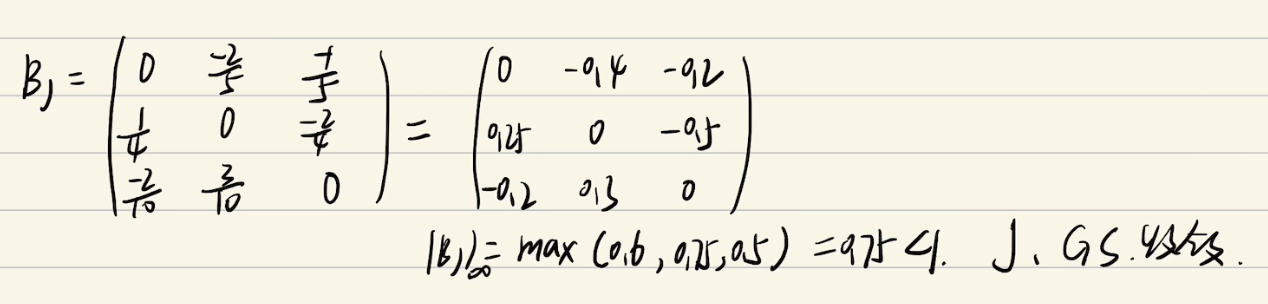 B_J = \begin{pmatrix} 0 & \frac{-2}{5} & \frac{-1}{5} \\ \frac{1}{4} & 0 & \frac{-2}{4} \\ \frac{-2}{10} & \frac{3}{10} & 0 \end{pmatrix} = \begin{pmatrix} 0 & -0.4 & -0.2 \\ 0.25 & 0 & -0.5 \\ -0.2 & 0.3 & 0 \end{pmatrix}
|B_J|_∞ = max (0.6, 0.75, 0.5) = 0.75 < 1. J、GS.收敛.